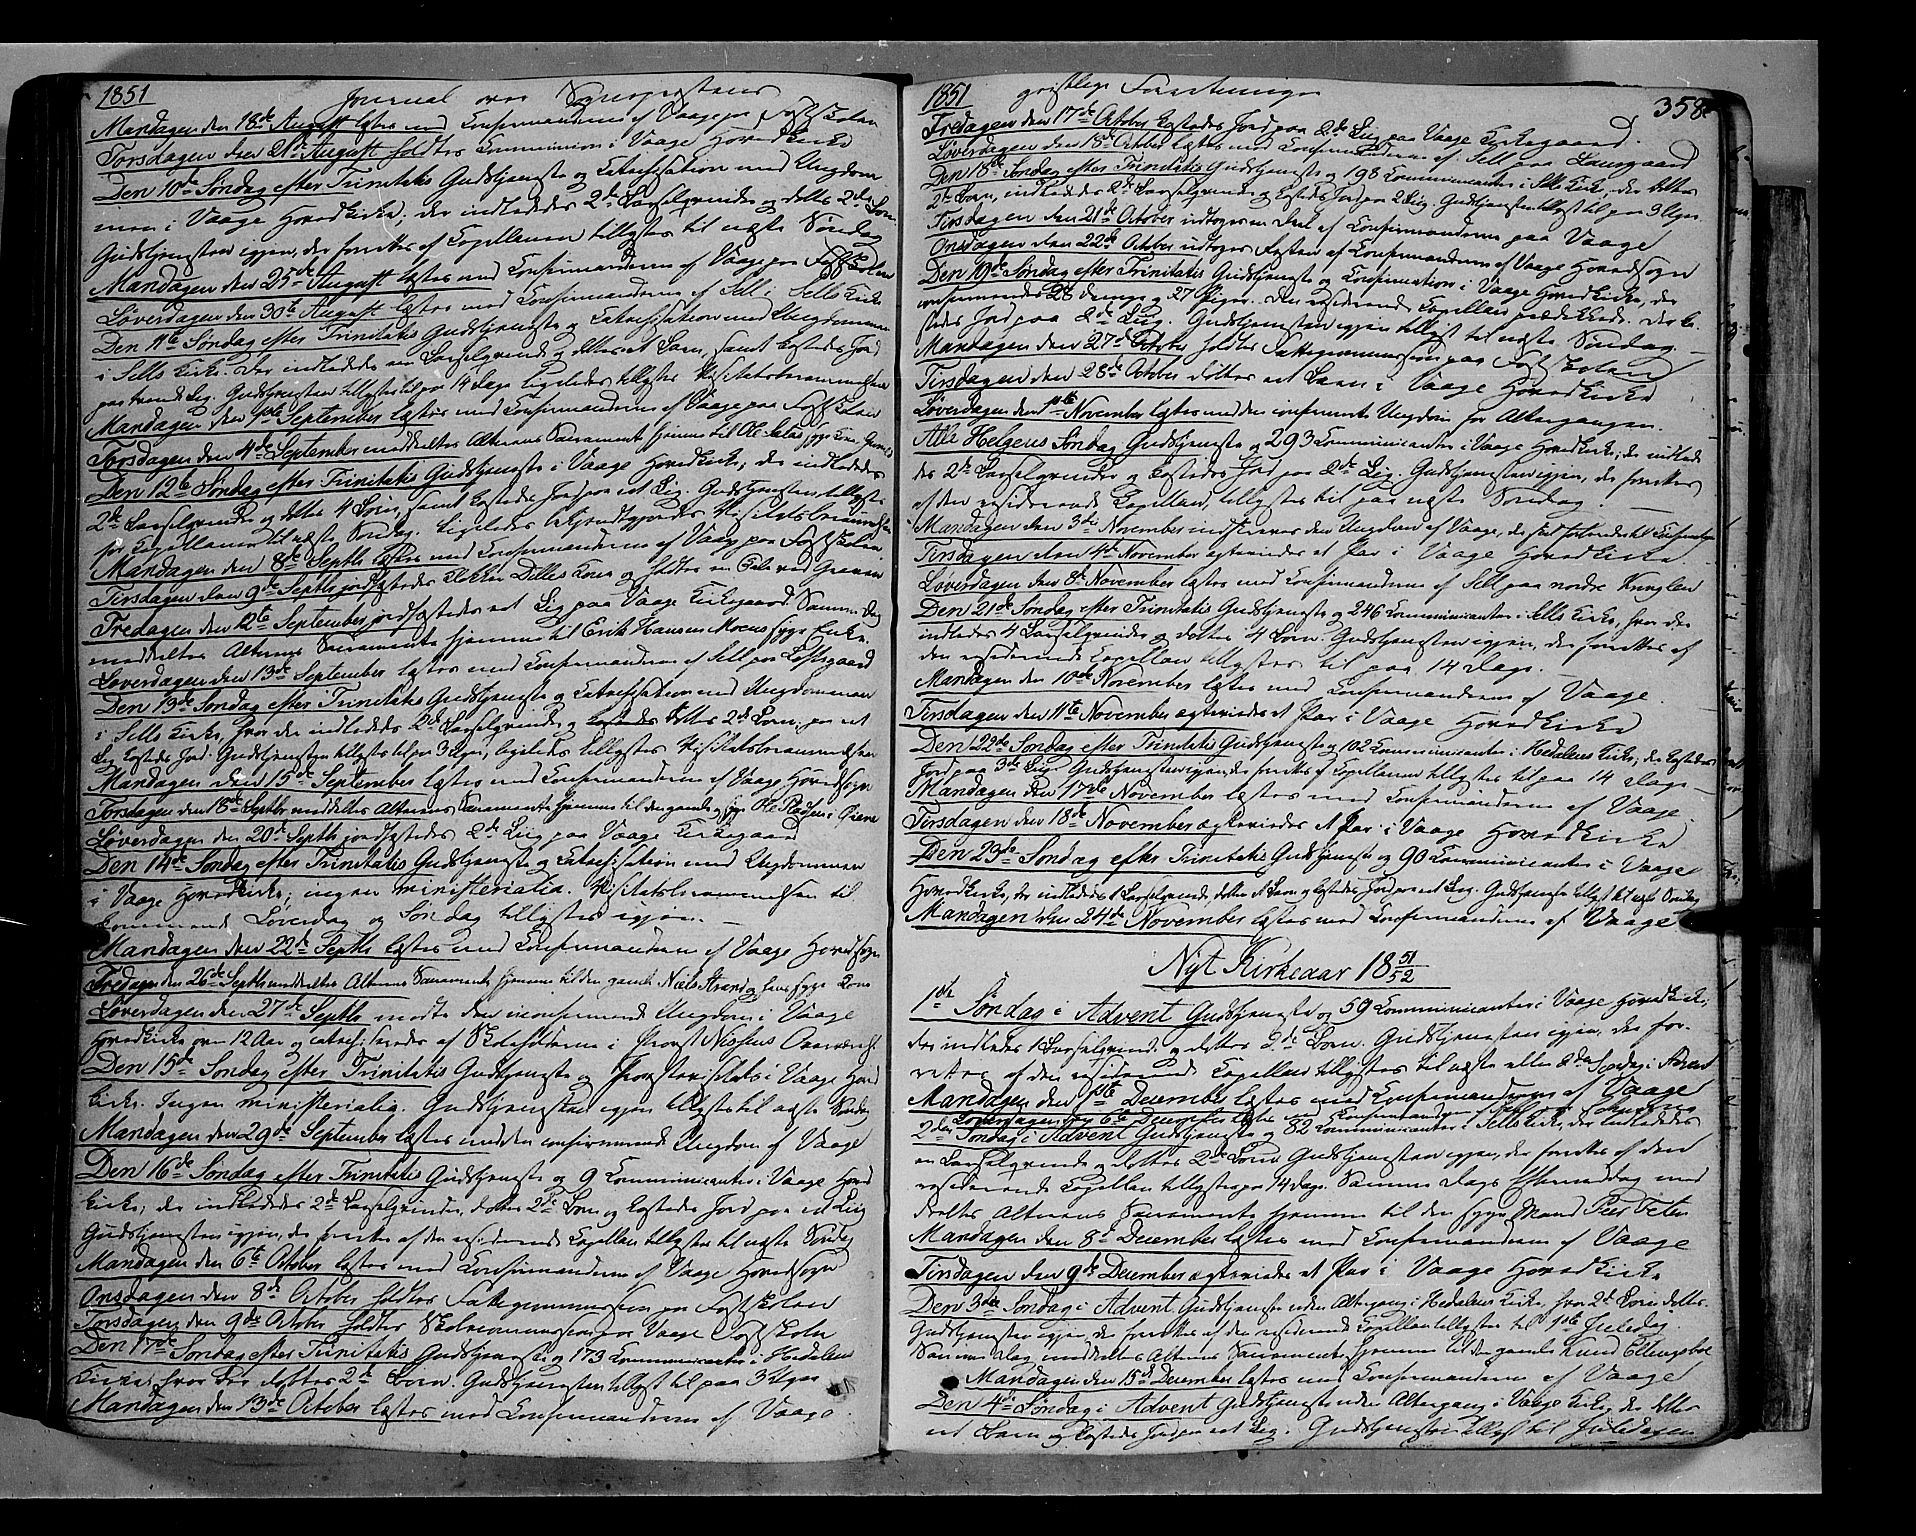 1851
Journal over Sognepræstens
Mandagen den 18de August læstes med Confirmanderne af Vaage paa Fastskolen
Torsdagen den 21de August holdtes Communion i Vaage Hovedkirke
Den 10de Søndag efter Trinitatis Gudstjeneste og Catechisation med Ungdom
men i Vaage Hovedkirke; der indledtes 2de Barselqvinder og døbtes 2de Børn.
Gudstjenesten igjen, der forrettes af Capellanen tillystes til næste Søndag
Mandagen den 25de August læstes med Confirmanderne af Vaage paa Fastskolen
Løverdagen den 30te August læstes med Confirmanderne af Sell i Sells Kirke
Den 11te Søndag efter Trinitatis Gudstjeneste og Catechisation med Ungdommen
i Sells Kirke. Der indledtes en Barselqvinde og døbtes et Barn, samt kastedes Jord
paa trende Lig. Gudstjenesten tillystes til paa 14 Dage ligeledes tillystes Visitatsberammelsen
Mandagen den 1ste September læstes med Confirmanderne af Vaage paa Fastskolen
Torsdagen den 4de September meddeeltes Alterens Sacramente hjemme til Ole syge Kone
Den 12te Søndag efter Trinitatis Gudstjeneste i Vaage Hovedkirke; der indledtes
2de Barselqvinder og døbtes 4 Børn, samt kastedes Jord paa et Lig. Gudstjenesten tillystes
for Capellanen til næste Søndag. Ligeledes bekjendtgjordes Visitatsberammelsen
Mandagen den 8de Septbr læstes med Confirmanderne af Vaage paa Fastskolen
Tirsdagen den 9de Septbr jordfæstedes Klokker Kone og holdtes en Tale ved Graven
Fredagen den 12te September jordfæstedes et Lig paa Vaage Kirkegaard. Samme Dag
meddeeltes Alterens Sacramente hjemme til Erik Hansen Moens syge Enke.
Løverdagen den 13de September læstes med Confirmanderne af Sell paa Loftsgaard
Den 13de Søndag efter Trinitatis Gudstjeneste og Catechisation med Ungdommen
i Sells Kirke, hvor der indledtes 2de Barselqvinder og døbtes 2de Børn; paa et
Lig kastedes Jord. Gudstjenesten tillystes til paa 3 Uger, ligeledes tillystes Visitatsberammelsen
Mandagen den 15de September læstes med Confirmanderne af Vaage Hovedsogn
Torsdagen den 18de Septbr meddeeltes Alterens Sacramente hjemme til den gamle og syge Ole
Løverdagen den 20de Septbr jordfæstedes 2de Liig paa Vaage Kirkegaard
Den 14de Søndag efter Trinitatis Gudstjeneste og Catechisation med Ungdommen
i Vaage Hovedkirke; ingen ministerialia. Visitatsberammelsen til
kommende Løverdag og Søndag tillystes igjen.
Mandagen den 22de Septbr læstes med Confirmanderne af Vaage Hovedsogn
Fredagen den 26de Septbr meddeeltes Alterens Sacramente hjemme til den gamle Niels Strand og hans syge Kone
Løverdagen den 27de Septbr mødte den confirmerede Ungdom i Vaage
Hovedkirke over 12 Aar og catechiseredes af Skoleholderne i Provst Nissens Overværelse
Den 15de Søndag efter Trinitatis Gudstjeneste og Provstevisitats i Vaage Hoved
kirke. Ingen ministerialia. Gudstjenesten igjen tillystes til næste Søndag
Mandagen den 29de September læstes med den confirmerede Ungdom af Vaage
Den 16de Søndag efter Trinitatis Gudstjeneste og 9 Communicanter i Vaage Hoved
kirke; der indledtes 2de Barselqvinder, døbtes 2de Børn og kastedes Jord paa et Liig
Gudstjenesten igjen, der forrettes af den residerende Capellan tillystes til næste Søndag
Mandagen den 6te October læstes med Confirmanderne af Vaage Hovedsogn
Onsdagen den 8de October holdtes Fattigcommission paa Fastskolen
Torsdagen den 9de October holdtes Skolecommission paa Vaage Fastskole
Den 17de Søndag efter Trinitatis Gudstjeneste og 173 Communicanter i Hedalens
Kirke, hvor der døbtes 2de Børn. Gudstjenesten tillyst til paa 3 Uger
Mandagen den 13de October læstes med Confirmanderne af Vaage
1851
geistlige Forretninger
358
Fredagen den 17de October kastedes Jord paa 2de Lig paa Vaage Kirkegaard.
Løverdagen den 18de October læstes med Confirmanderne af Sell paa Laurgaard
Den 18de Søndag efter Trinitatis Gudstjeneste og 198 Communicanter i Sells Kirke, der døbtes
2de Børn, indledtes 2de Barselqvinder og kastedes Jord paa 2 Liig. Gudstjenesten tillyst til paa 3 Uger.
Tirsdagen den 21de October indtoges en Deel af Confirmanderne paa Vaage
Onsdagen den 22de October indtoges Resten af Confirmanderne af Vaage Hovedsogn
Den 19de Søndag efter Trinitatis Gudstjeneste og Confirmation i Vaage Hovedkirke, der
confirmeredes 28 Drenge og 27 Piger. Den residerende Capellan prædikede. Der ka
stedes Jord paa 2de Liig. Gudstjenesten igjen tillyst til næste Søndag.
Mandagen den 27de October holdtes Fattigcommission paa Fastskolen
Tirsdagen den 28de October døbtes et Barn i Vaage Hovedkirke
Løverdagen den 1ste November læstes med den confirmerte Ungdom for Altergangen.
Alle Helgens Søndag Gudstjeneste og 293 Communicanter i Vaage Hovedkirke; der indled
des 2de Barselqvinder og kastedes Jord paa 2de Lig. Gudstjenesten igjen, der forrettes
af den residerende Capellan, tillystes til paa næste Søndag.
Mandagen den 3die November indskreves den Ungdom af Vaage, der til Confirmation
Tirsdagen den 4de November ægteviedes et Par i Vaage Hovedkirke.
Løverdagen den 8de November læstes med Confirmanderne af Sell paa nordre
Den 21de Søndag efter Trinitatis Gudstjeneste og 246 Communicanter i Sells Kirke, hvor der
indledes 4 Barselqvinder og døbtes 4 Børn. Gudstjenesten igjen, der forrettes af
den residerende Capellan tillystes til paa 14 Dage.
Mandagen den 10de November læstes med Confirmanderne af Vaage.
Tirsdagen den 11te November ægteviedes et Par i Vaage Hovedkirke
Den 22de Søndag efter Trinitatis Gudstjeneste og 102 Communicanter i Hedalens Kirke, der kastedes
Jord paa 3de Liig. Gudstjenesten igjen, der forrettes af Capellanen tillystes til paa 14 Dage
Mandagen den 17de November læstes med Confirmanderne af Vaage.
Tirsdagen den 18de November ægteviedes et Par i Vaage Hovedkirke
Den 23de Søndag efter Trinitatis Gudstjeneste og 90 Communicanter i Vaage
Hovedkirke, der indledtes 1 Barselqvinde, døbtes et Barn og kastedes Jord paa et Liig. Gudstjeneste tillyst til næste Søndag
Mandagen den 24de November læstes med Confirmanderne af Vaage
Nyt Kirkeaar 18 51/52
1ste Søndag i Advent Gudstjeneste og 59 Communicanter i Vaage Hovedkirke;
der indledtes 1 Barselqvinde og døbtes 2de Børn. Gudstjenesten igjen, der for-
rettes af den residerende Capellan tillystes til næste eller 2den Søndag i Advent
Mandagen den 1ste December læstes med Confirmanderne af Vaage
Løverdagen den 6te December læstes med Confirmanderne af Sell
2den Søndag i Advent Gudstjeneste og 82 Communicanter i Sells Kirke, der indledtes
en Barselqvinde og døbtes 2de Børn. Gudstjenesten igjen, der forrettes af den
residerende Capellan tillystes paa 14 Dage. Samme Dags Eftermiddag med
deeltes Alterens Sacramente hjemme til den syge Mand Peer
Mandagen den 8de December læstes med Confirmanderne af Vaage
Tirsdagen den 9de December ægteviedes et Par i Vaage Hovedkirke
Den 3die Søndag i Advent Gudstjeneste uden Altergang i Hedalens Kirke, hvor 2de Børn døbtes.
Gudstjenesten igjen, der forrettes af den residerende Capellan tillystes til 1ste Juledag.
Samme Dag meddeeltes Alterens Sacramente hjemme til den gamle Knud
Mandagen den 15de December læstes med Confirmanderne af Vaage
Den 4de Søndag i Advent Gudstjeneste uden Altergang i Vaage Kirke, der døbtes
et Barn og kastedes Jord paa et Lig. Gudstjenesten tillyst til Juledagen